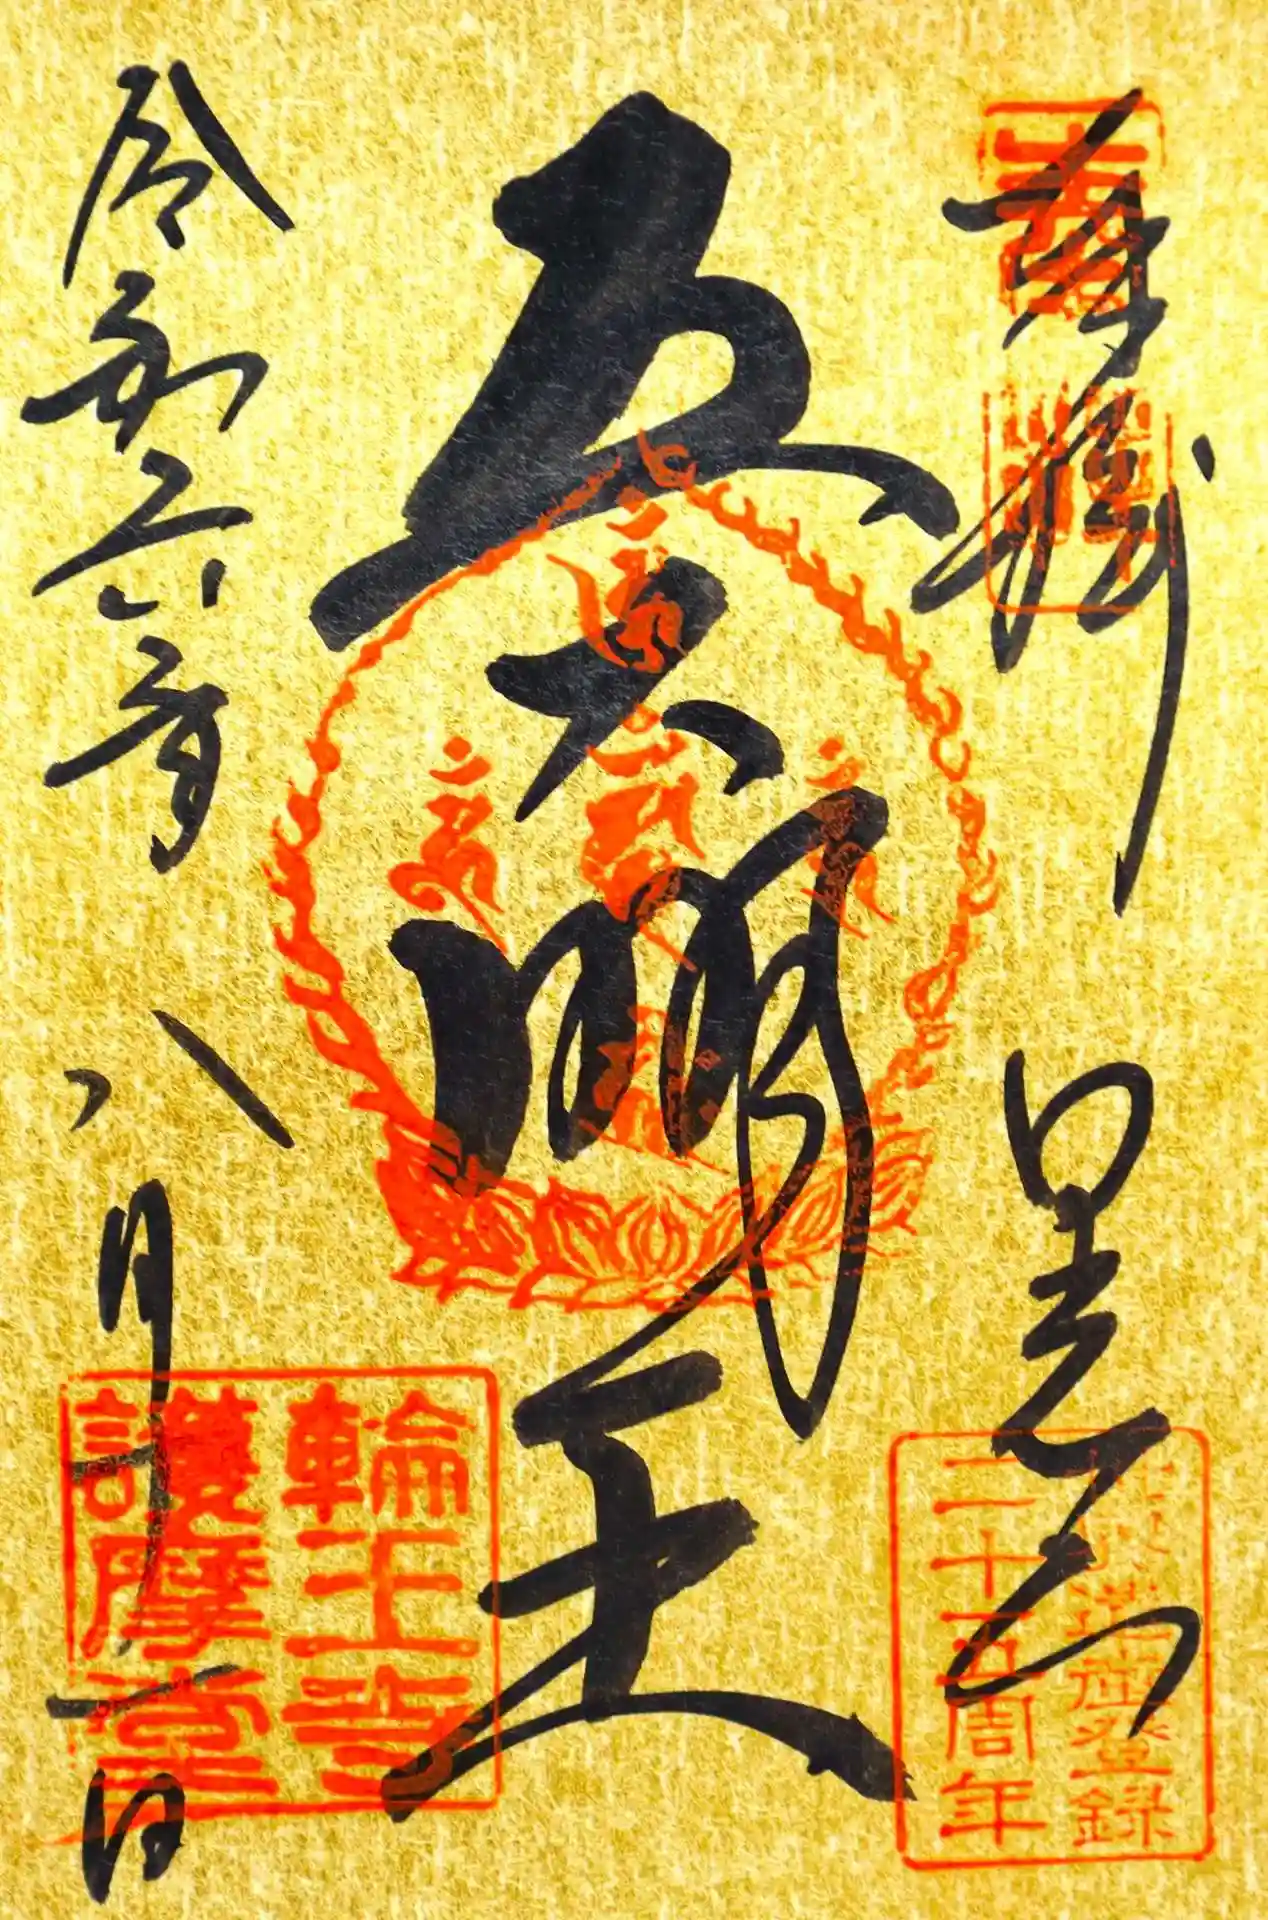 奉拝 日光山
世界遺産登録
二十五周年
五大明王
令和六年八月一日
輪王寺
護摩堂